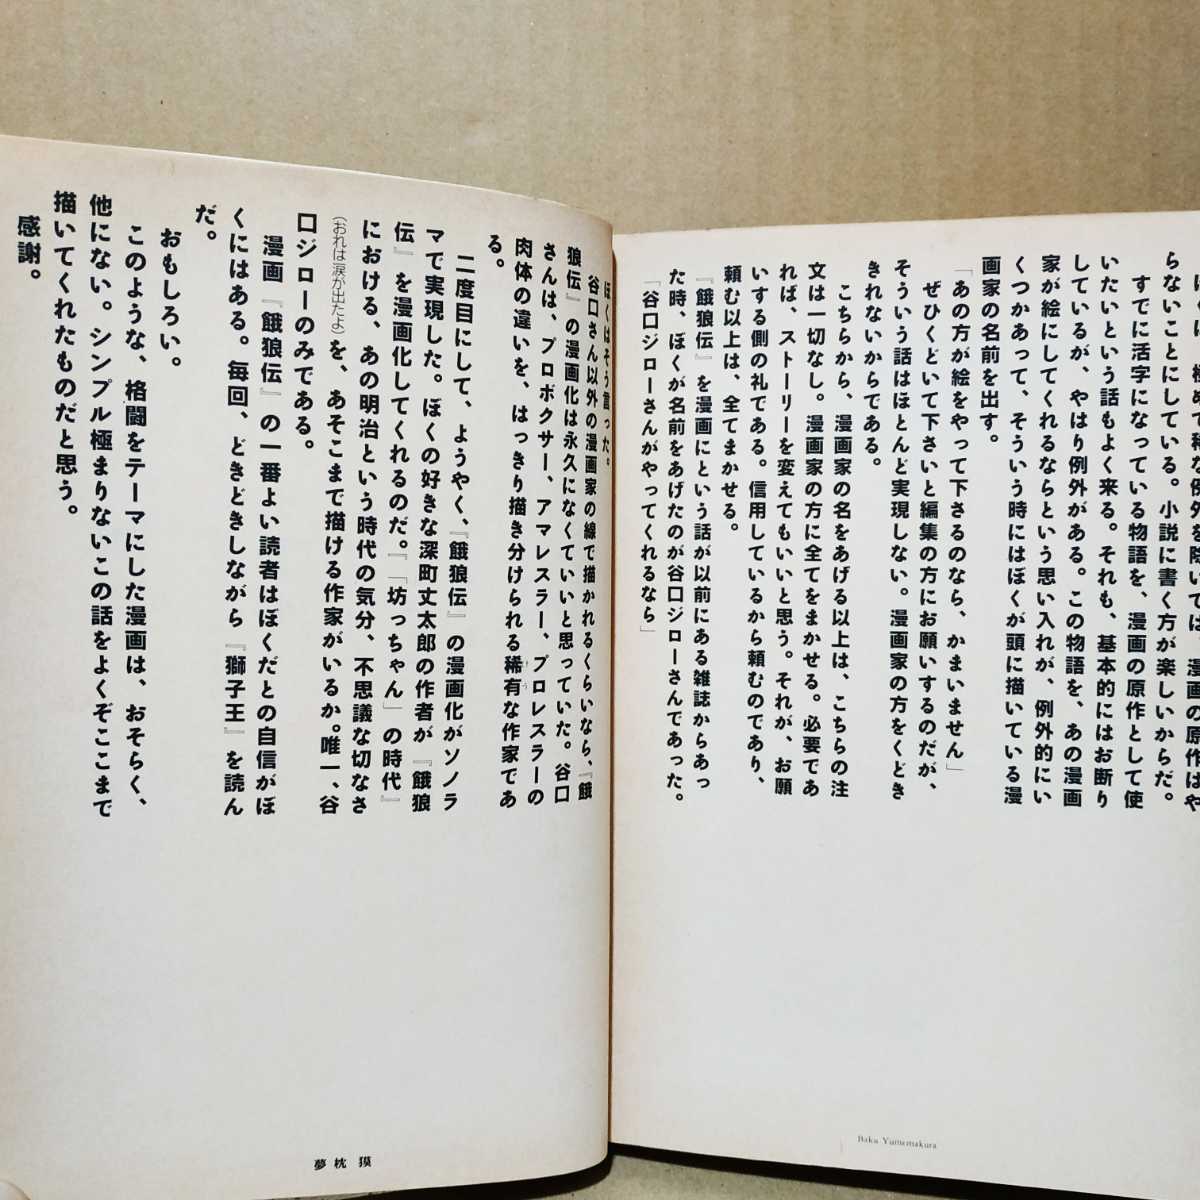 ぼくは、極めて稀な例外を除いては、漫画の原作はや
らないことにしている。小説に書く方が楽しいからだ。
すでに活字になっている物語を、漫画の原作として使
いたいという話もよく来る。それも、基本的にはお断り
しているが、やはり例外がある。この物語を、あの漫画
家が絵にしてくれるならという思い入れが、例外的にい
くつかあって、そういう時にはぼくが頭に描いている漫
画家の名前を出す。
「あの方が絵をやって下さるのなら、かまいません」
ぜひくどいて下さいと編集の方にお願いするのだが、
そういう話はほとんど実現しない。漫画家の方をくどき
きれないからである。
こちらから、漫画家の名をあげる以上は、こちらの注
文は一切なし。漫画家の方に全てをまかせる。必要であ
れば、ストーリーを変えてもいいと思う。それが、お願
いする側の礼である。信用しているから頼むのであり、
頼む以上は、全てまかせる。
『餓狼伝』を漫画にという話が以前にある雑誌からあっ
た時、ぼくが名前をあげたのが谷口ジローさんであった。
「谷口ジローさんがやってくれるなら」
Baku Yumemakura
ぼくはそう言った。
谷口さん以外の漫画家の線で描かれるくらいなら、『餓
狼伝』の漫画化は永久になくていいと思っていた。谷口
さんは、プロボクサー、アマレスラー、プロレスラーの
肉体の違いを、はっきり描き分けられる稀有な作家であ
る。
二度目にして、ようやく、『餓狼伝』の漫画化がソノラ
マで実現した。ぼくの好きな深町丈太郎の作者が『餓狼
伝』を漫画化してくれるのだ。『「坊っちゃん」の時代』
における、あの明治という時代の気分、不思議な切なさ
（おれは涙が出たよ）を、あそこまで描ける作家がいるか。唯一、谷
口ジローのみである。
漫画『餓狼伝』の一番よい読者はぼくだとの自信がぼ
くにはある。毎回、どきどきしながら『獅子王』を読ん
だ。
おもしろい。
このような、格闘をテーマにした漫画は、おそらく、
他にない。シンプル極まりないこの話をよくぞここまで
描いてくれたものだと思う。
感謝。
夢枕 獏